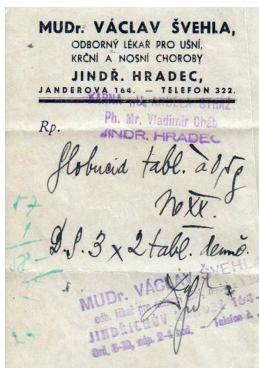 MUDr. VÁCLAV ŠVEHLA,
ODBORNÝ LÉKAŘ PRO UŠNÍ,
KRČNÍ A NOSNÍ CHOROBY
JINDŘ. HRADEC,
JANDEROVA 164. — TELEFON 322.
Ph. Mr. Vladimir Cháb
JINDŘ. HRADEC
Rp.
Globucid tabl. à 0,5g
No XX.
D.S. 3 x 2 tabl. denně.
MUDr. VÁCLAV ŠVEHLA
odb. lékař pro
JINDŘICHŮV 164
Ord. 8-10, odp. 2-4 Telefon č.